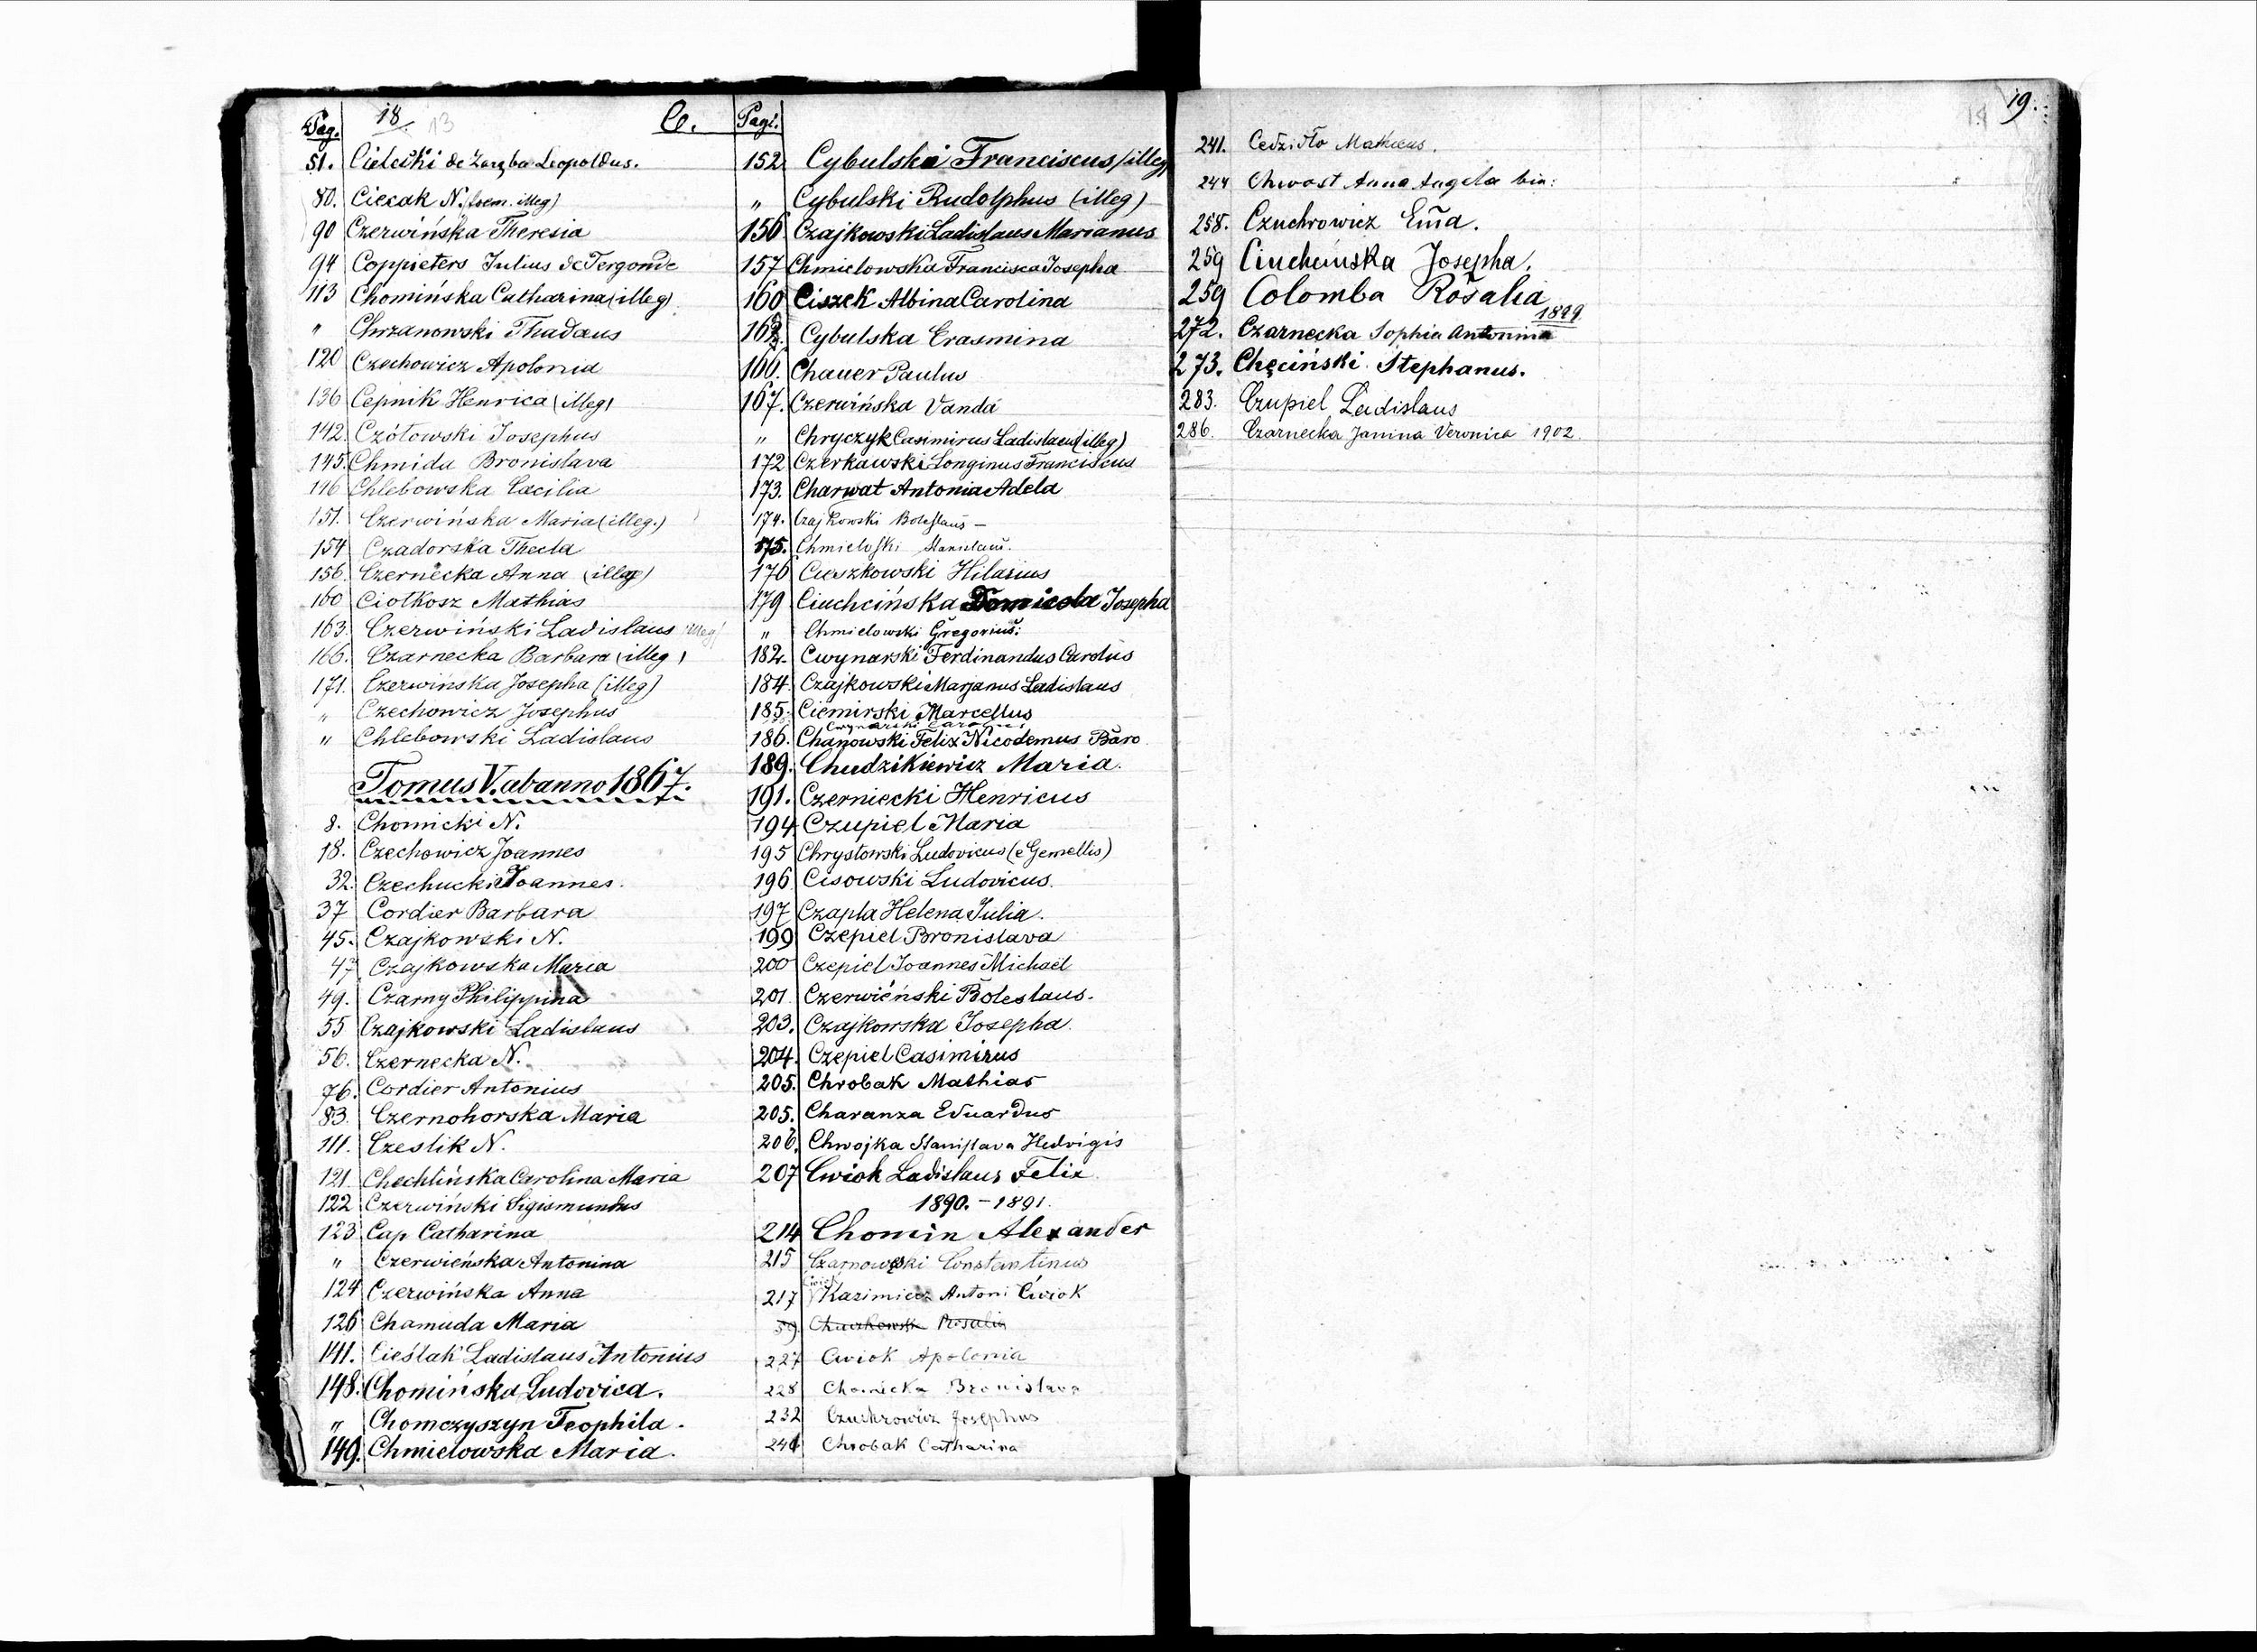 Pag. 18. C.
51. Cielecki de Zaręba Leopoldus.
80. Ciecak N. (foem. illeg)
90 Czerwińska Theresia
94 Coppieters Julius de Tergonde
113 Chomińska Catharina (illeg)
" Chrzanowski Thadaus
120 Czechowicz Apolonia
136 Cepnik Henrica (illeg)
142. Czółowski Josephus
145. Chmida Bronislava
146 Chlebowska Cæcilia
151. Czerwińska Maria (illeg.)
154 Czadorska Thecla
156. Czernecka Anna (illeg)
160 Ciotkosz Mathias
163. Czerwiński Ladislaus illeg)
166. Czarnecka Barbara (illeg)
171. Czerwińska Josepha (illeg)
" Czechowicz Josephus
" Chlebowski Ladislaus
Tomus V. ab anno 1867.
8. Chomicki N.
18. Czechowicz Joannes
32. Czechucki Joannes.
37 Cordier Barbara
45. Czajkowski N.
47 Czajkowska Maria
49. Czarny Philippina
55 Czajkowski Ladislaus
56. Czernecka N.
76. Cordier Antonius
83. Czernohorska Maria
111. Czeslik N.
121. Chechlińska Carolina Maria
122 Czerwiński Sigismundus
123 Cap Catharina
" Czerwieńska Antonina
124 Czerwińska Anna
126 Chamuda Maria
141. Cieślak Ladislaus Antonius
148. Chomińska Ludovica.
" Chomczyszyn Teophila.
149. Chmielowska Maria.
Pagi.
152 Cybulski Franciscus (illeg)
" Cybulski Rudolphus (illeg)
156 Czajkowski Ladislaus Marianus
157 Chmielowska Francisca Josepha
160 Ciszek Albina Carolina
162 Cybulska Erasmina
166. Chauer Paulus
167. Czerwińska Vanda
" Chryczyk Casimirus Ladislaus (illeg)
172 Czerkawski Longinus Franciscus
173. Charwat Antonia Adela
174. Czajkowski Boleslaus —
175. Chmielofski Stanislaus.
176 Cieszkowski Hilarius
179 Ciuchcińska Domicela Josepha
" Chmielowski Gregorius:
182. Cwynarski Ferdinandus Carolus
184 Czajkowski Marjanus Ladislaus
185. Ciemirski Marcellus
Cwynarski
186. Chanowski Felix Nicodemus Baro
189. Chudzikiewicz Maria.
191. Czerniecki Henricus
194 Czupiel Maria
195 Chrystowski Ludovicus (e Gemellis)
196 Cisowski Ludovicus.
197 Czapla Helena Julia.
199 Czepiel Bronislava
200 Czepiel Joannes Michaël
201 Czerwiéński Boleslaus.
203. Czajkowska Josepha.
204. Czepiel Casimirus
205. Chrobak Mathias
205. Charanza Eduardus
206. Chwojka Stanislava Hedvigis
207 Cwiok Ladislaus Felix
1890. — 1891.
214 Chomin Alexander
215 Czarnowski Constantinus
Ćwiok
217 Kazimierz Antoni Ćwiok
59. Rosalia
227 Cwiok Apolonia
228 Chomicka Bronislava
232 Czuchrowicz Josephus
241 Chrobak Catharina
19.
241. Cedzidło Matheus.
244 Chwost Anna Angela bin:
258. Czuchrowicz Em̃a.
259 Ciuchcińska Josepha.
259 Colomba Rosalia
1899
272. Czarnecka Sophia Antonina
273. Chęciński Stephanus.
283. Czupiel Ladislaus
286. Czarnecka Janina Veronica 1902.